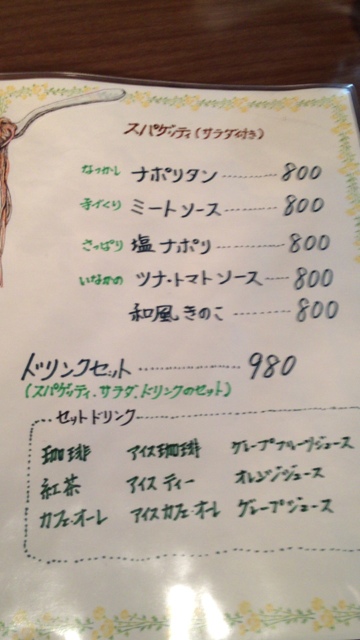 スパゲッティ(サラダ付き)
なつかし ナポリタン 800
手づくり ミートソース 800
さっぱり 塩ナポリ 800
いなかの ツナ・トマトソース 800
和風きのこ 800
ドリンクセット 980
(スパゲッティ.サラダ.ドリンクのセット)
セットドリンク
珈琲 アイス珈琲 グレープフルーツジュース
紅茶 アイスティー オレンジジュース
カフェ・オーレ アイスカフェ・オ・レ グレープジュース